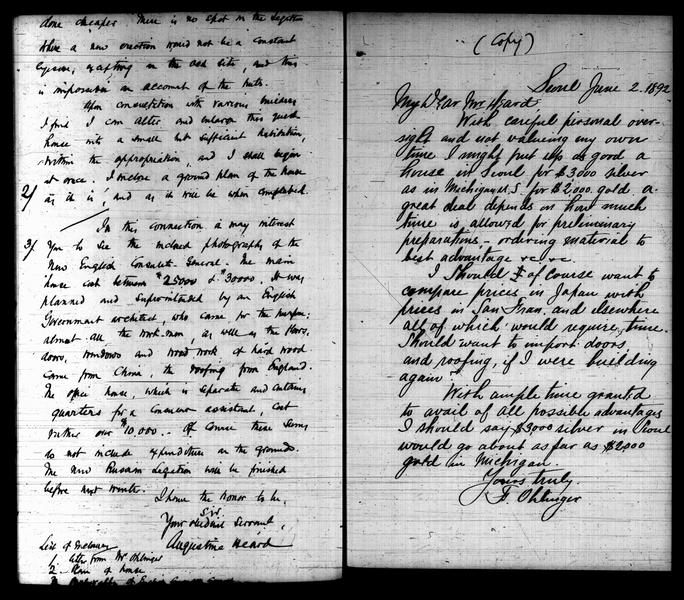 done cheaper. There is no spot in the Legation
where a new erection would not be a constant
eyesore, excepting on the old site, and this
is impossible on account of the huts.
Upon consultation with various builders
I find I can alter and enlarge this guest
house into a small but sufficient habitation,
within the appropriation, and I shall begin
at once. I inclose a ground plan of the house
2/ as it is, and as it will be when completed.
In this connection it may interest
3/ you to see the inclosed photographs of the
New English Consulate General. The main
house cost between $25000 & $30000. It was
planned and superintended by an English
Government architect, who came for the purpose:
almost all the work-men, as well as the floors,
doors, windows and wood work of hard wood
came from China, the roofing from England.
The office house, which is separate and contains
quarters for a Consular assistant, cost
rather over $10,000. - Of course these sums
do not include expenditure on the grounds.
The new Russian Legation will be finished
before next winter.
I have the honor to be,
Sir
Your obedient servant,
Augustine Heard
List of Inclosures
1. Letter from Mr Ohlinger
2. Plan of house
3. Photographs of English
(Copy)
Seoul June 2. 1892
My Dear Mr. Heard
With careful personal over-
sight and not valuing my own
time I might put up as good a
house in Seoul for $3000 silver
as in Michigan U.S. for $2,000. gold. a
great deal depends on how much
time is allowed for preliminary
preparations, - ordering material to
best advantage &c &c.
I Should I of course want to
compare prices in Japan with
prices in San Fran. and elsewhere
all of which would require time.
Should want to import doors
and roofing, if I were building
again.
With ample time granted
to avail of all possible advantages
I should say $3000 silver in Seoul
would go about as far as $2000
gold in Michigan.
Yours truly.
F. Ohlinger